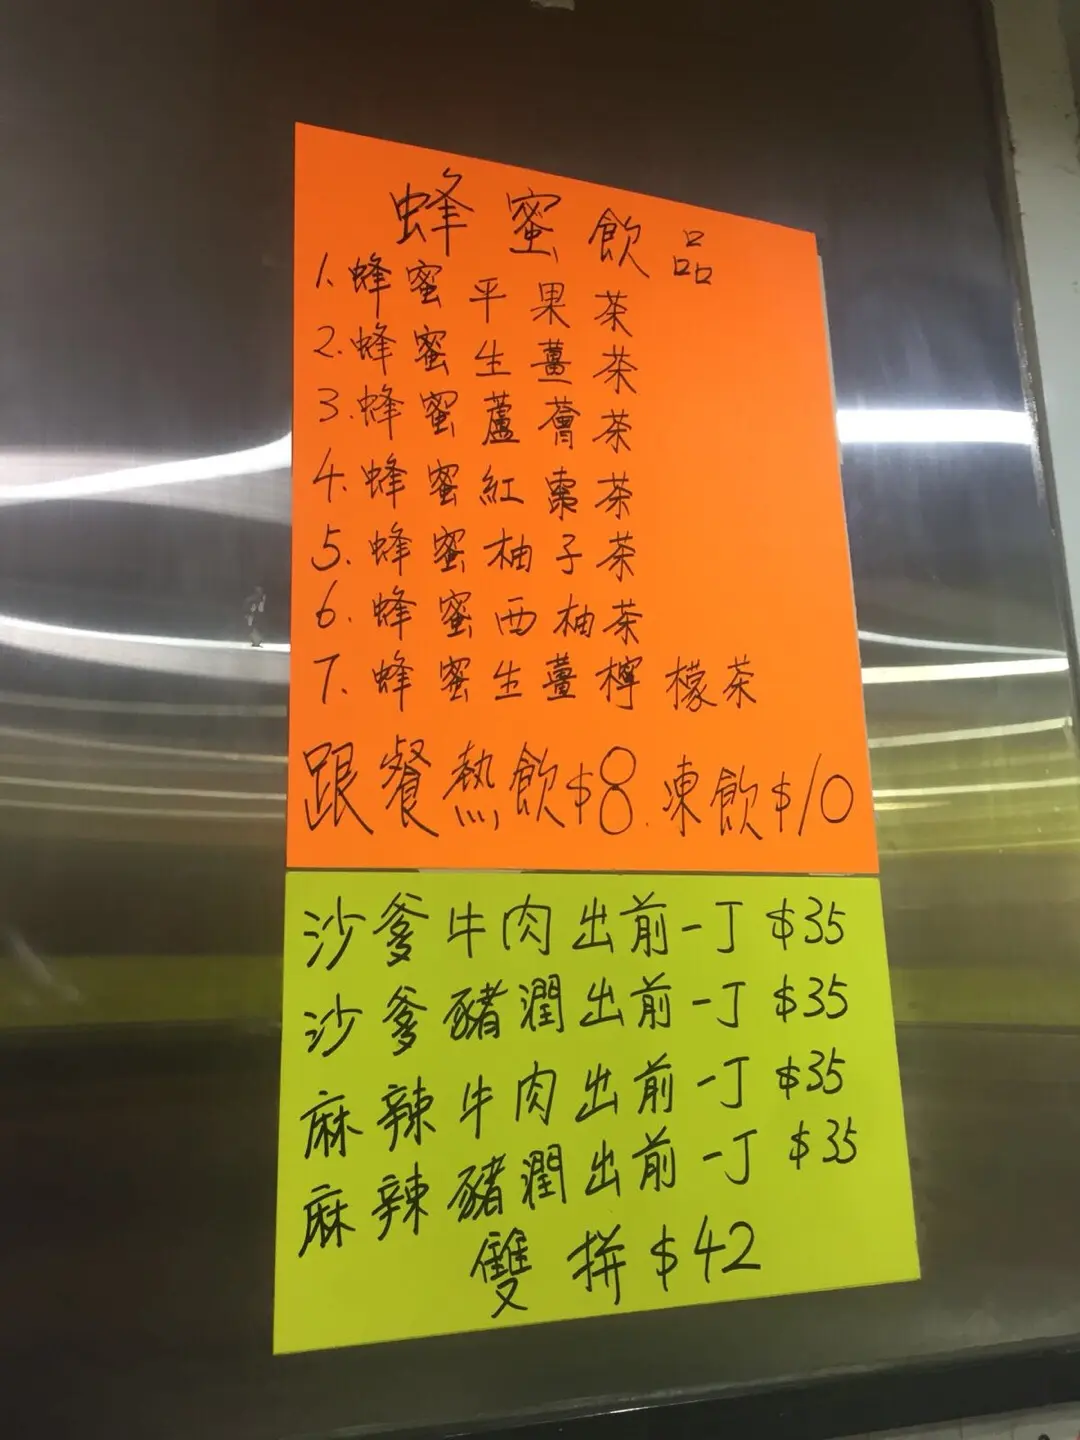 蜂蜜飲品
1. 蜂蜜平果茶
2. 蜂蜜生薑茶
3. 蜂蜜蘆薈茶
4. 蜂蜜紅棗茶
5. 蜂蜜柚子茶
6. 蜂蜜西柚茶
7. 蜂蜜生薑檸檬茶
跟餐熱飲$8. 凍飲$10
沙爹牛肉出前一丁 $35
沙爹豬潤出前一丁 $35
麻辣牛肉出前一丁 $35
麻辣豬潤出前一丁 $35
雙拼 $42